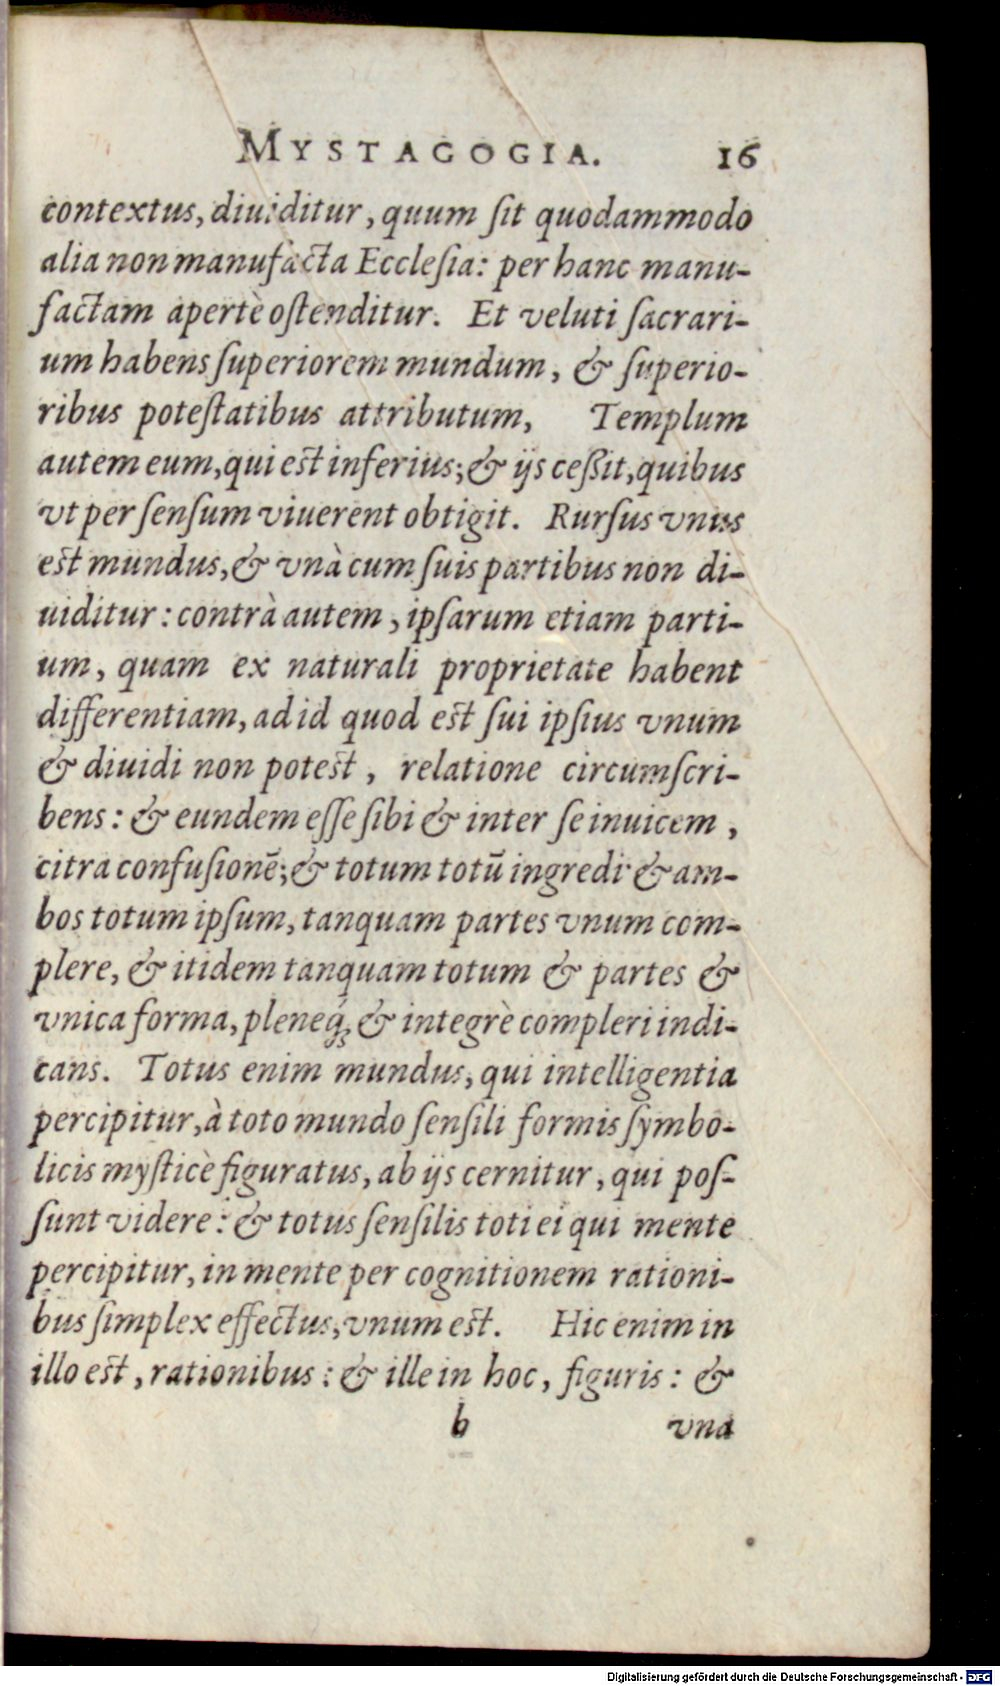 MYSTAGOGIA. 16
contextus, diuiditur, quum ſit quodammodo
alia non manufacta Eccleſia: per hanc manu-
factam apertè oſtenditur. Et veluti ſacrari-
um habens ſuperiorem mundum, & ſuperio-
ribus poteſtatibus attributum, Templum
autem eum, qui eſt inferius; & ijs ceßit, quibus
vt per ſenſum viuerent obtigit. Rurſus vnus
eſt mundus, & vnà cum ſuis partibus non di-
uiditur: contrà autem, ipſarum etiam parti-
um, quam ex naturali proprietate habent
differentiam, ad id quod eſt ſui ipſius vnum
& diuidi non poteſt, relatione circumſcri-
bens: & eundem eſſe ſibi & inter ſe inuicem,
citra confuſionē; & totum totū ingredi: & am-
bos totum ipſum, tanquam partes vnum com-
plere, & itidem tanquam totum & partes &
vnica forma, pleneq́; & integrè compleri indi-
cans. Totus enim mundus, qui intelligentia
percipitur, à toto mundo ſenſili formis ſymbo-
licis myſticè figuratus, ab ijs cernitur, qui poſ-
ſunt videre: & totus ſenſilis toti ei qui mente
percipitur, in mente per cognitionem rationi-
bus ſimplex effectus, vnum eſt. Hic enim in
illo eſt, rationibus: & ille in hoc, figuris: &
b vna
Digitalisierung gefördert durch die Deutsche Forschungsgemeinschaft - DFG